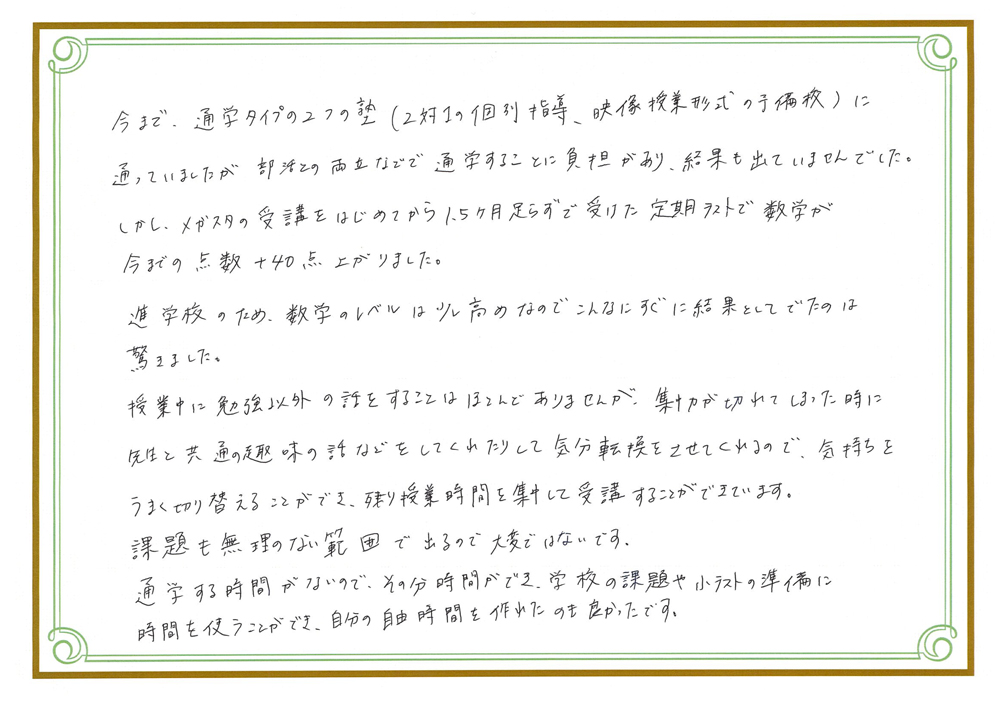 今まで、通学タイプの2つの塾(2対1の個別指導、映像授業形式の予備校)に
通っていましたが部活との両立などで通学することに負担があり、結果も出ていませんでした。
しかし、メガスタの受講をはじめてから1.5ヶ月足らずで受けた定期テストで数学が
今までの点数+40点上がりました。
進学校のため、数学のレベルは少し高めなのでこんなにすぐに結果としてでたのは
驚きました。
授業中に勉強以外の話をすることはほとんどありませんが、集中力が切れてしまった時に
先生と共通の趣味の話などをしてくれたりして気分転換をさせてくれるので、気持ちを
うまく切り替えることができ、残り授業時間を集中して受講することができています。
課題も無理のない範囲で出るので大変ではないです。
通学する時間がないので、その分時間ができ、学校の課題や小テストの準備に
時間を使うことができ、自分の自由時間を作れたのも良かったです。